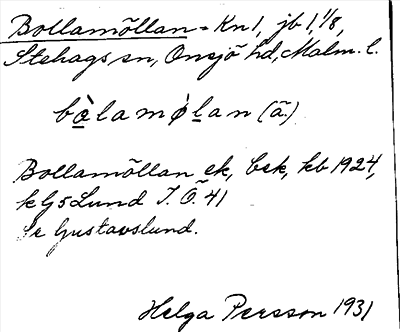 Bollamöllan = Kn 1, jb 1, 1/8,
Stehags sn, Onsjö hd, Malm. l.
bòlamølan (ã.)
Bollamöllan ek, bsk, kb 1924,
klj5Lund I.Ö. 41
Se Gustavslund.
Helga Persson 1931